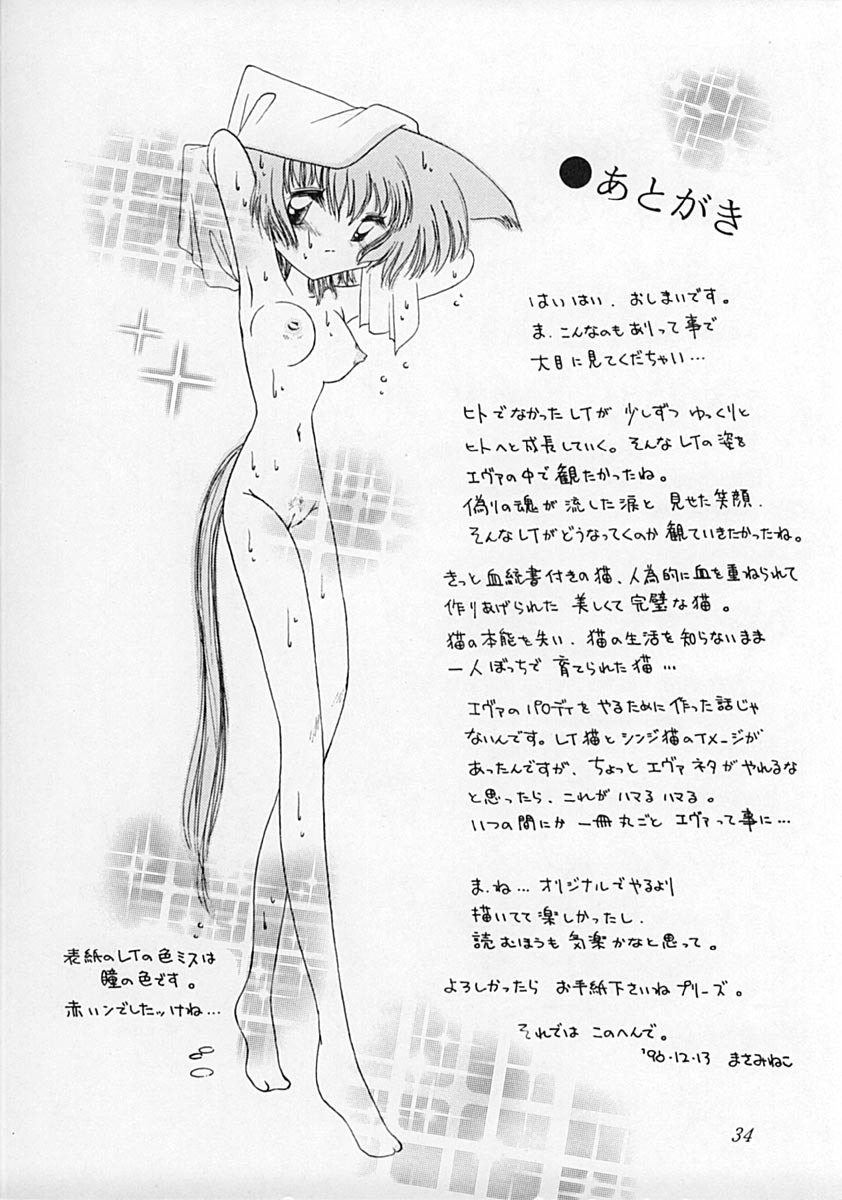 ●あとがき
はいはい、おしまいです。
ま、こんなのもありって事で
大目に見てくだちゃい…
ヒトでなかったレイが 少しずつ ゆっくりと
ヒトへと成長していく。そんなレイの姿を
エヴァの中で観たかったね。
偽りの魂が流した涙と 見せた笑顔、
そんなレイがどうなってくのか 観ていきたかったね。
きっと血統書付きの猫、人為的に血を重ねられて
作りあげられた 美しくて完璧な猫。
猫の本能を失い、猫の生活を知らないまま
一人ぼっちで 育てられた猫…
エヴァのパロディをやるために作った話じゃ
ないんです。レイ猫とシンジ猫のイメージが
あったんですが、ちょっとエヴァネタがやれるな
と思ったら、これがハマるハマる。
いつの間にか 一冊丸ごと エヴァって事に…
ま、ね… オリジナルでやるより
描いてて楽しかったし、
読むほうも 気楽かなと思って。
よろしかったら お手紙下さいね プリーズ。
それでは このへんで。
'96.12.13 まさみねこ
表紙のレイの色ミスは
瞳の色です。
赤いンでしたッけね…
34